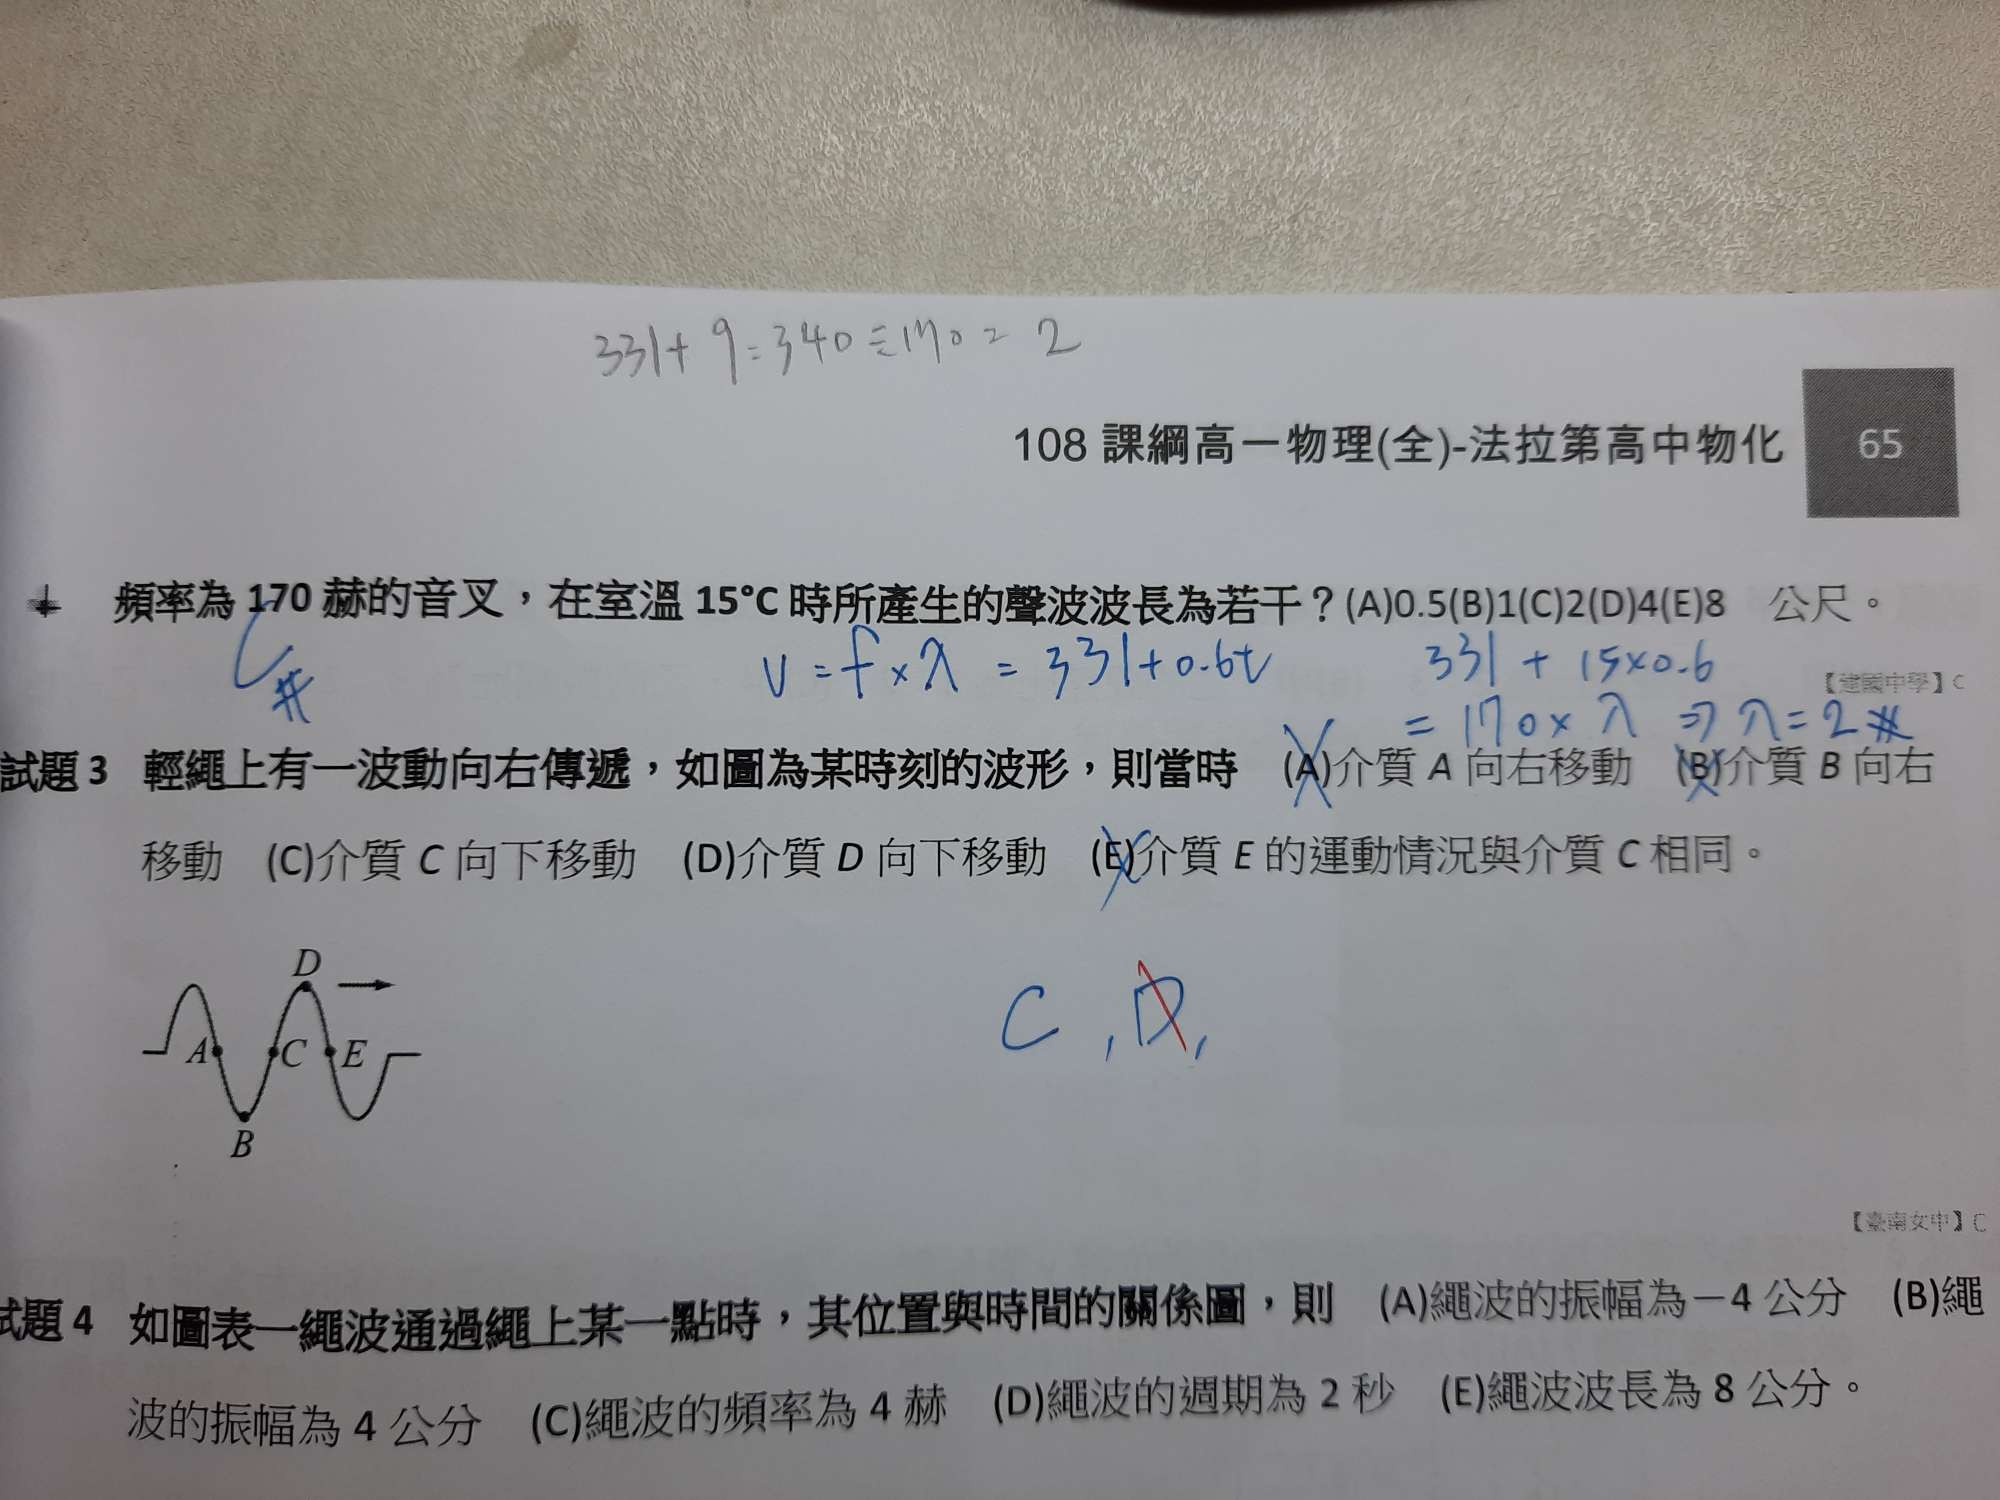 331+9=340÷170=2
108 課綱高一物理(全)-法拉第高中物化 65
頻率為 170 赫的音叉，在室溫 15°C 時所產生的聲波波長為若干？(A)0.5(B)1(C)2(D)4(E)8 公尺。
C#
V=f×λ=331+0.6t
331+15×0.6
【建國中學】C
=170×λ ⇒λ=2#
試題 3 輕繩上有一波動向右傳遞，如圖為某時刻的波形，則當時 (A)介質 A 向右移動 (B)介質 B 向右
移動 (C)介質 C 向下移動 (D)介質 D 向下移動 (E)介質 E 的運動情況與介質 C 相同。
D
A C E
B
C,D,
【臺南女中】C
試題 4 如圖表一繩波通過繩上某一點時，其位置與時間的關係圖，則 (A)繩波的振幅為－4 公分 (B)繩
波的振幅為 4 公分 (C)繩波的頻率為 4 赫 (D)繩波的週期為 2 秒 (E)繩波波長為 8 公分。